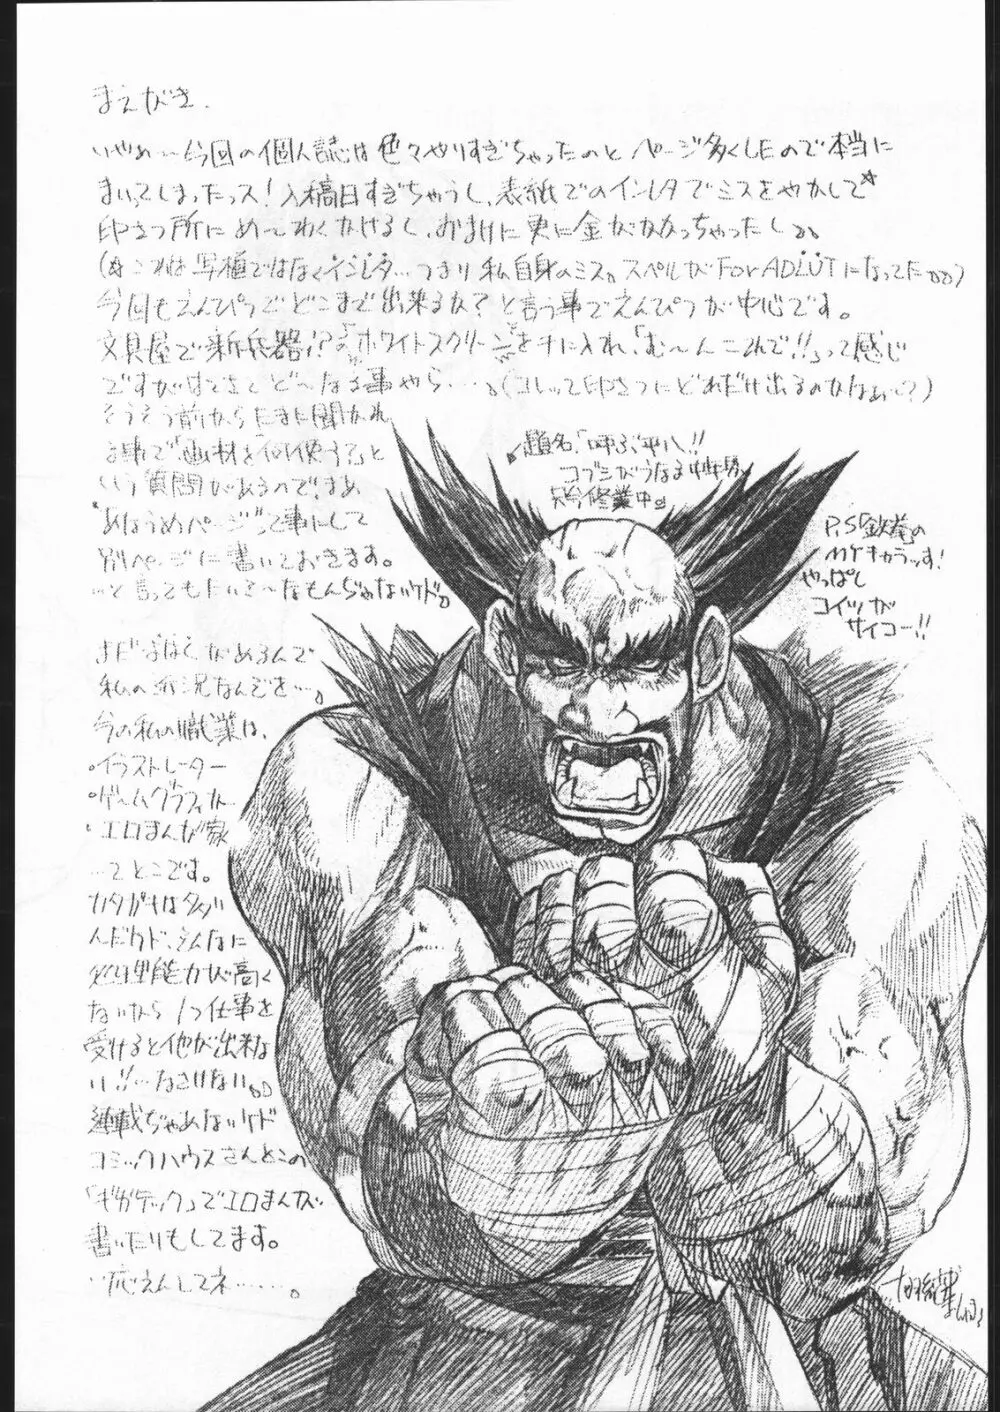 まえがき.
いやぁ〜今回の個人誌は色々やりすぎちゃったのと ページ多くしたので本当に
まいってしまったっス!入稿日すぎちゃうし、表紙でのインレタでミスをやかして☆
印さつ所にめ〜わくかけるし、おまけに更に金がかかっちゃったし。
(☆これは写植ではなくインレタ…つまり私自身のミス。スペルがFor ADLUTになってた。。)
今回もえんぴつでどこまで出来るか?と言う事でえんぴつが中心です。
文具屋で新兵器!?の「ホワイトスクリーン」を手に入れ、「む〜んこれで!!」って感じ
ですがはてさてど〜なる事やら……。(コレって印さつにどれだけ出るのかなぁ〜?)
そうそう前からたまに聞かれ
る事で「画材を何使う?」と
いう質問があるので、まぁ
"あほうめページ"って事にして
別ページに書いておきます。
…と言ってもたいそ〜なもんぢゃないケド。
まだよはくがあるんで
私の近況なんぞを…。
今の私の職業は、
•イラストレーター
•ゲームグラフィッカー
•エロまんが家
…てとこです。
カタガキは多い
んだケド、そんなに
処理能力が高く
ないから1つ仕事を
受けると他が出来な
い!!…なさけない。。
連載ぢゃあないケド
コミックハウスさんとこの
「ギガテック」でエロまんが
書いたりもしてます。
…応えんしてネ……。
題名「叫ぶ平八!!
コブシがうなる
只今修業中。
P.S「鉄拳」の
MYキャラっす!
やっぱし
コイツが
サイコー!!